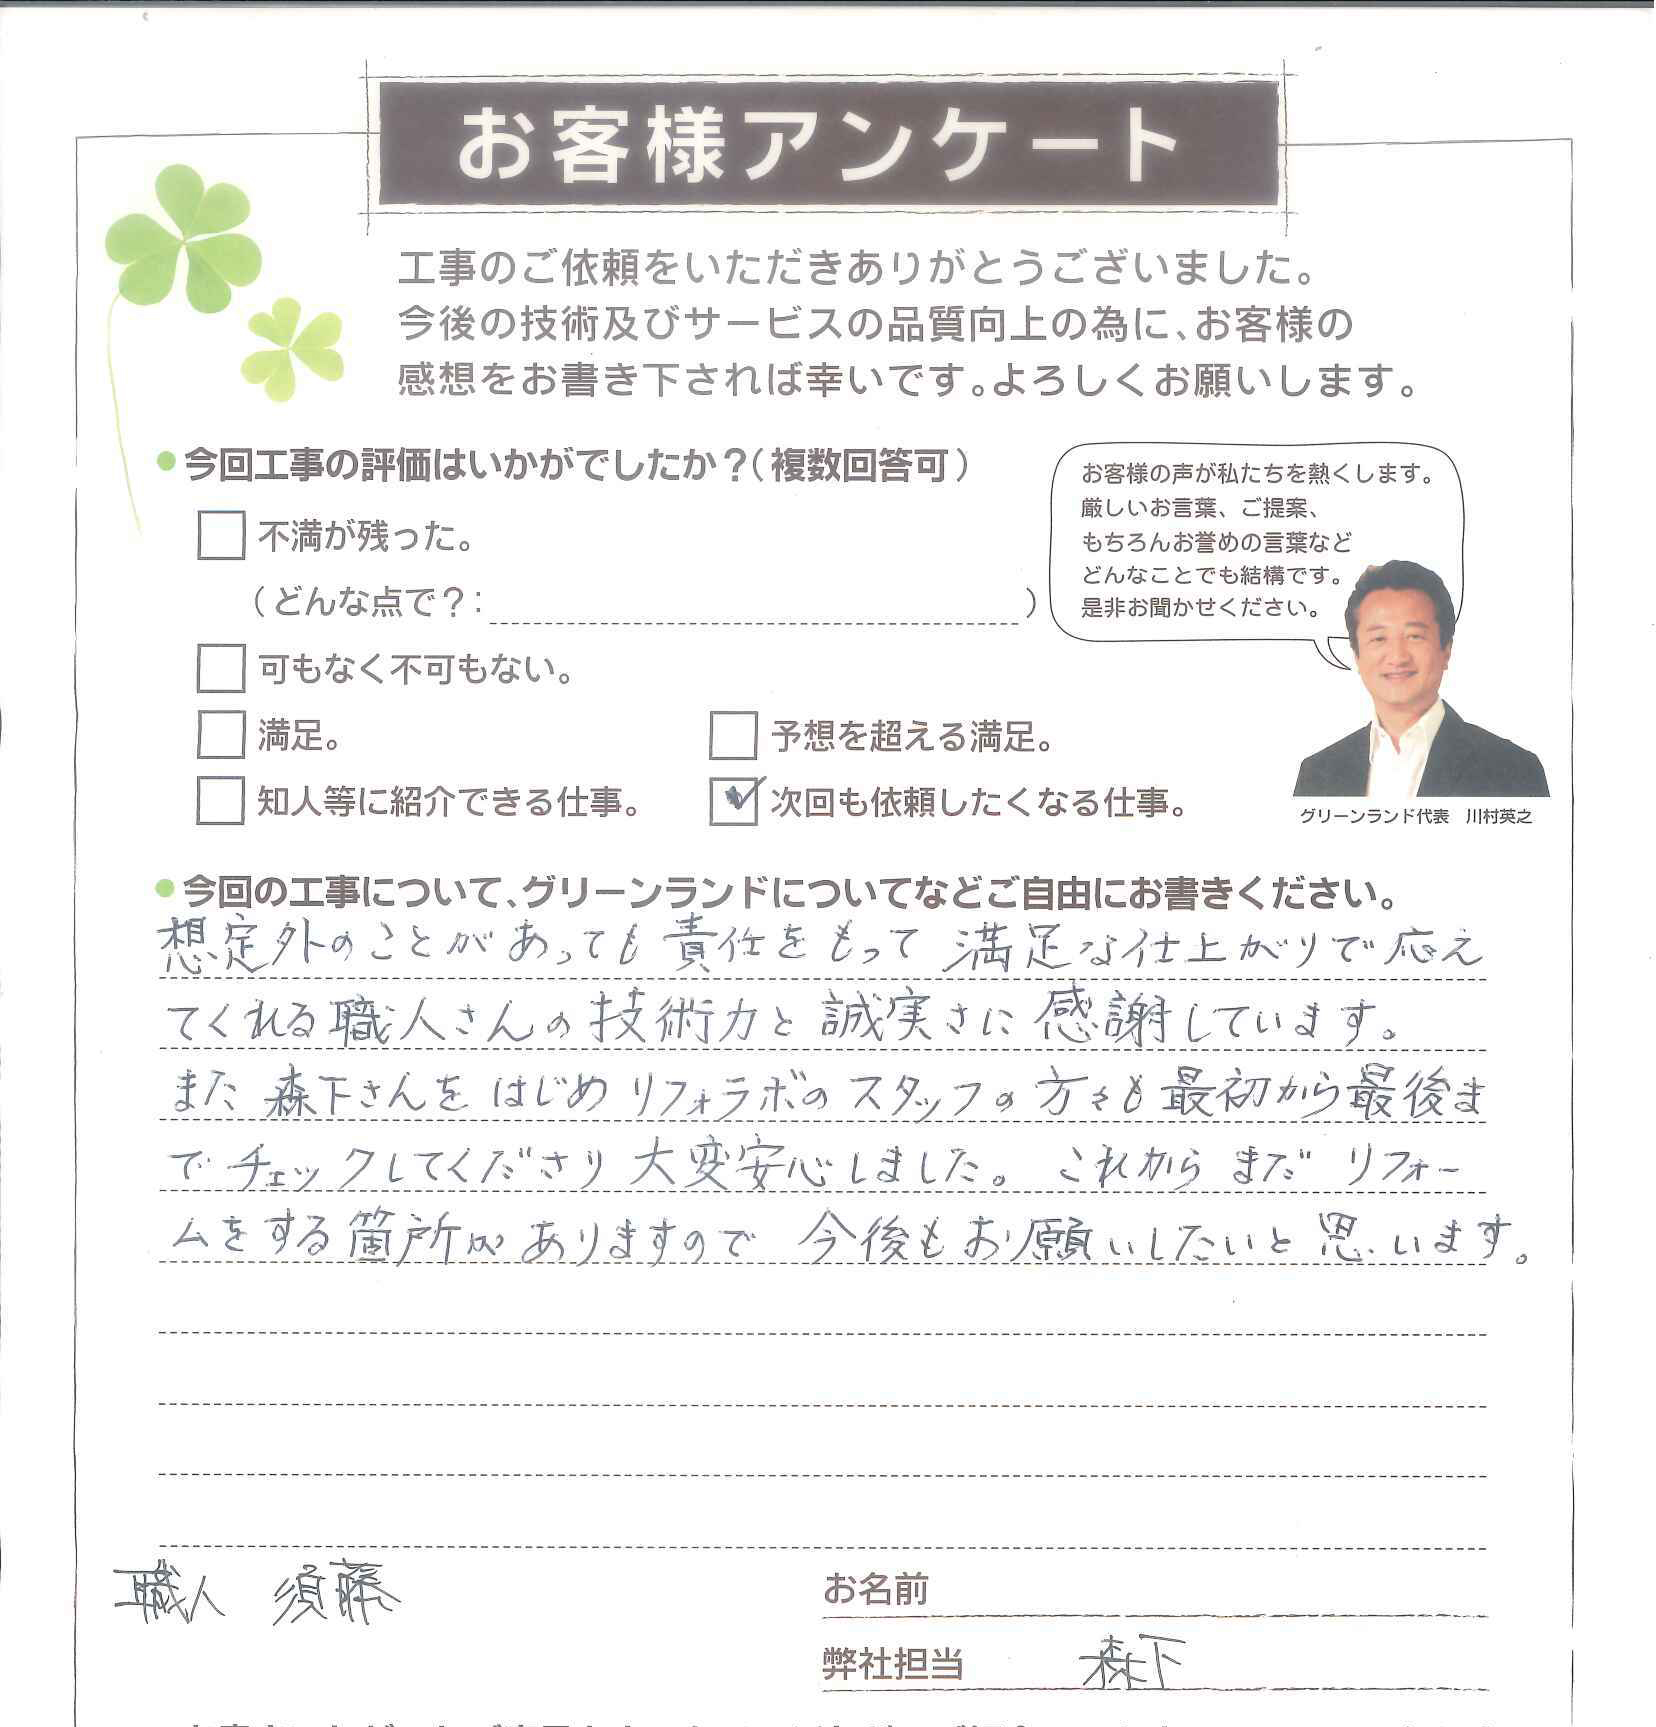 お客様アンケート
工事のご依頼をいただきありがとうございました。
今後の技術及びサービスの品質向上の為に、お客様の
感想をお書き下されば幸いです。よろしくお願いします。
今回工事の評価はいかがでしたか？（複数回答可）
不満が残った。
（どんな点で？：　　　）
可もなく不可もない。
満足。
予想を超える満足。
知人等に紹介できる仕事。
次回も依頼したくなる仕事。
お客様の声が私たちを熱くします。
厳しいお言葉、ご提案、
もちろんお誉めの言葉など
どんなことでも結構です。
是非お聞かせください。
グリーンランド代表　川村英之
今回の工事について、グリーンランドについてなどご自由にお書きください。
想定外のことがあっても責任をもって満足な仕上がりで応え
てくれる職人さんの技術力と誠実さに感謝しています。
また森下さんをはじめリフォラボのスタッフの方々も最初から最後ま
でチェックしてくださり大変安心しました。これからまだリフォー
ムをする箇所がありますので今後もお願いしたいと思います。
職人　須藤
お名前
弊社担当　森下